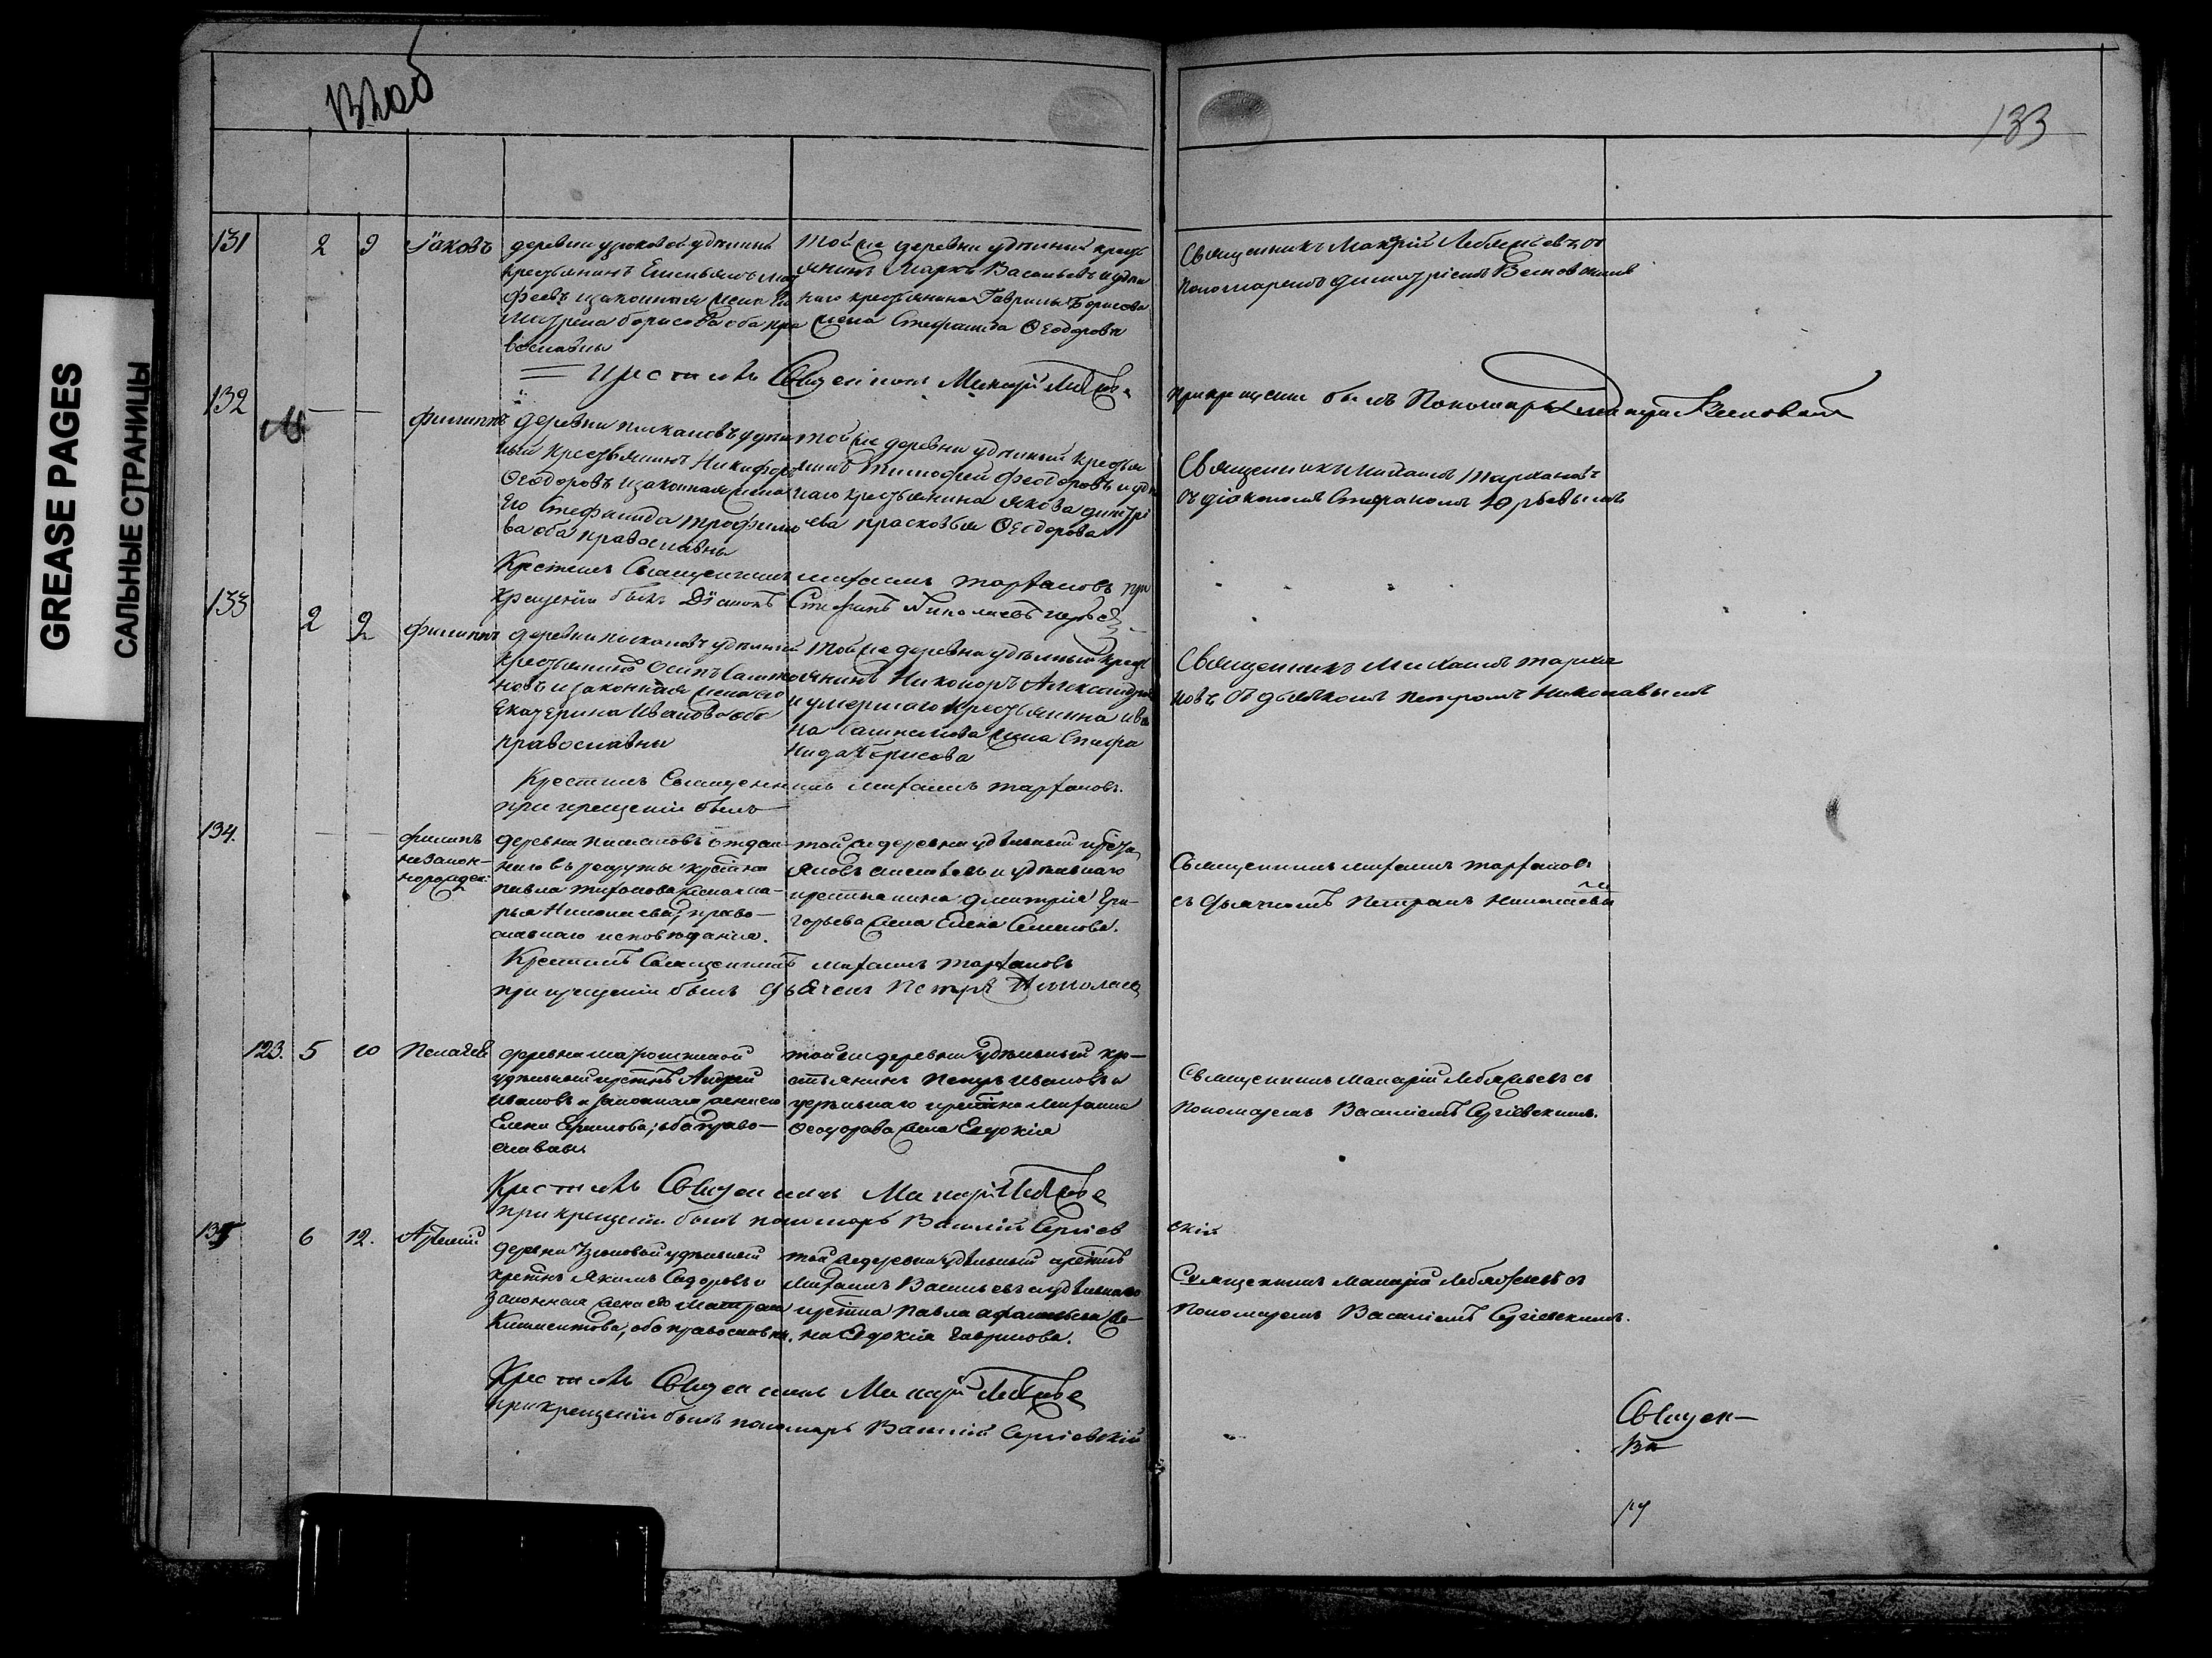 GREASE PAGES
САЛЬНЫЕ СТРАНИЦЫ
133
131
2
9
Іаковъ
деревни удѣльный
крестьянинъ Емельянъ Мат
феевъ и законная жена Его
Матрена борисова оба пра
вославны
Той же деревни удѣльный крест
янинъ Маркъ Васильевъ и удѣл
наго крестьянина Гаврилы Борисова
жена Стефанида Ѳеодорова
Священникъ Макарій Лебяжьевъ съ
пономаремъ Димитріемъ
Крестилъ Священникъ Макарій
при крещеніи былъ Пономарь
132
филиппъ
деревни удѣль
ный крестьянинъ Никифоръ
Ѳеодоровъ и законная жена
Его Стефанида трофимо
ва оба православны
той же деревни удѣльный крестья
нинъ Тимофей Феодоровъ и удѣл
наго крестьянина Якова димитрі
ева прасковья Ѳеодорова
Священникъ Михаилъ Тархановъ
съ діакономъ Стефаномъ
Крестилъ Священникъ михаилъ тархановъ при
крещеніи былъ Діаконъ Стефанъ
133
2
9
филиппъ
деревни удѣльный
крестьянинъ Осипъ
новъ и законная жена его
Екатерина Иванова оба
православны
Той же деревни удѣльный крест
янинъ Никоноръ Александровъ
и умершаго крестьянина ива
на жена Стефа
нида борисова
Священникъ Михаилъ тарха
новъ съ дьячкомъ петромъ Николаевымъ
Крестилъ Священникъ михаилъ тархановъ.
при крещеніи былъ
134.
филипъ
незакон-
норожден:
деревни отдан-
наго въ рекруты крестна
павла жена ма-
рья Николаева, право-
славнаго исповѣданія.
той же деревни удѣльный крест
яковъ и удѣльнаго
крестьянина Димитрія Гри-
горьева жена Елена Семенова.
Священникъ михаилъ тархановъ
съ дьячкомъ Петромъ Николаевы
мъ
Крестилъ Священникъ михаилъ тархановъ
при крещеніи былъ дьячекъ Петръ Николаев
123.
5
10
Пелагея
деревни
удѣльный крестнъ Андрей
Ивановъ и законная жена его
Елена Ермилова; оба право-
славны
той же деревни удѣльный кре-
стьянинъ Петръ Ивановъ и
удѣльнаго крестна Михаила
Ѳеодорова жена Евдокія
Священникъ Макарій Лебяжьевъ съ
Пономаремъ Василіемъ Сергіевскимъ.
Крестилъ Священникъ Макарій
при крещеніи былъ пономарь Василій Сергіев
скій
135
6
12.
Артемій
деревни удѣльный
крестнъ Якимъ Сидоровъ и
законная жена его Матрена
Климентова, оба православны.
той же деревни удѣльный крестнъ
Михаилъ Васильевъ и удѣльнаго
крестна Павла Афанасьева же-
на Евдокія Гаврилова.
Священникъ Макарій Лебяжьевъ съ
Пономаремъ Василіемъ Сергіевскимъ.
Крестилъ Священникъ Макарій
при крещеніи былъ пономарь Василій Сергіевскій
Священ-